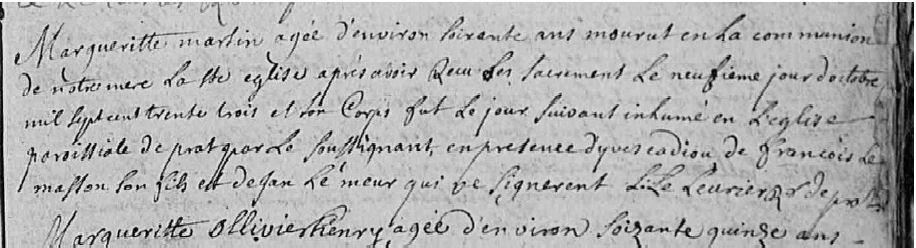 Margueritte martin agée d'environ soixante ans mourut en La communion
de notre mere La ste eglise aprés avoir Recu Les sacrement Le neufieme jour doctobre
mil sept cent trente trois et son Corps fut Le jour suivant inhumé en L'eglise
paroissiale de prat par Le soussignant, en presence dyves cadiou de francois Le
masson son fils et de jan Le meur qui ne signerent L. Le Leurier Rr de prat
Margueritte Ollivier henry agée d'environ soizante quinse ans